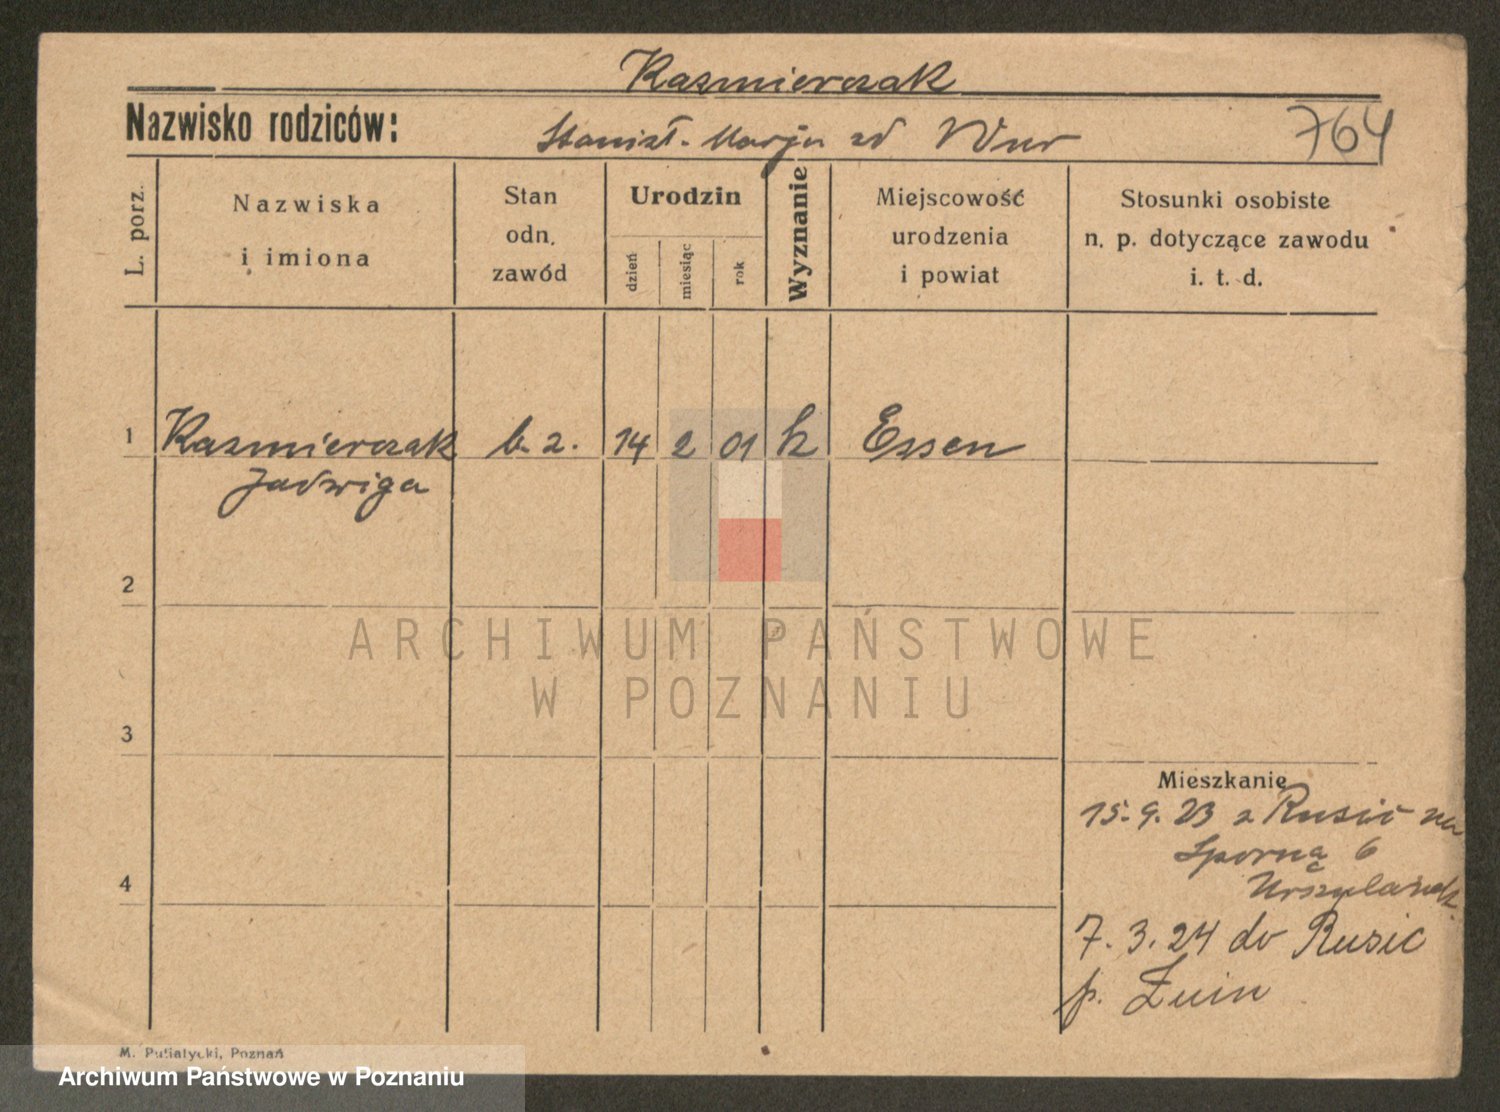 Kazmierczak
Nazwisko rodziców:
Stanisł. Marja zd Wur
764
L. porz.
Nazwiska
i imiona
Stan
odn.
zawód
Urodzin
dzień
miesiąc
rok
Wyznanie
Miejscowość
urodzenia
i powiat
Stosunki osobiste
n. p. dotyczące zawodu
i. t. d.
1 Kazmierczak b. z. 14 2 01 k Essen
Jadwiga
2
3
4
Mieszkanie
15. 9. 23 z Rusic na
Sporną 6
7. 3. 24 do Rusic
p. Żnin
M. Putiatycki, Poznań
ARCHIWUM PAŃSTWOWE
W POZNANIU
Archiwum Państwowe w Poznaniu